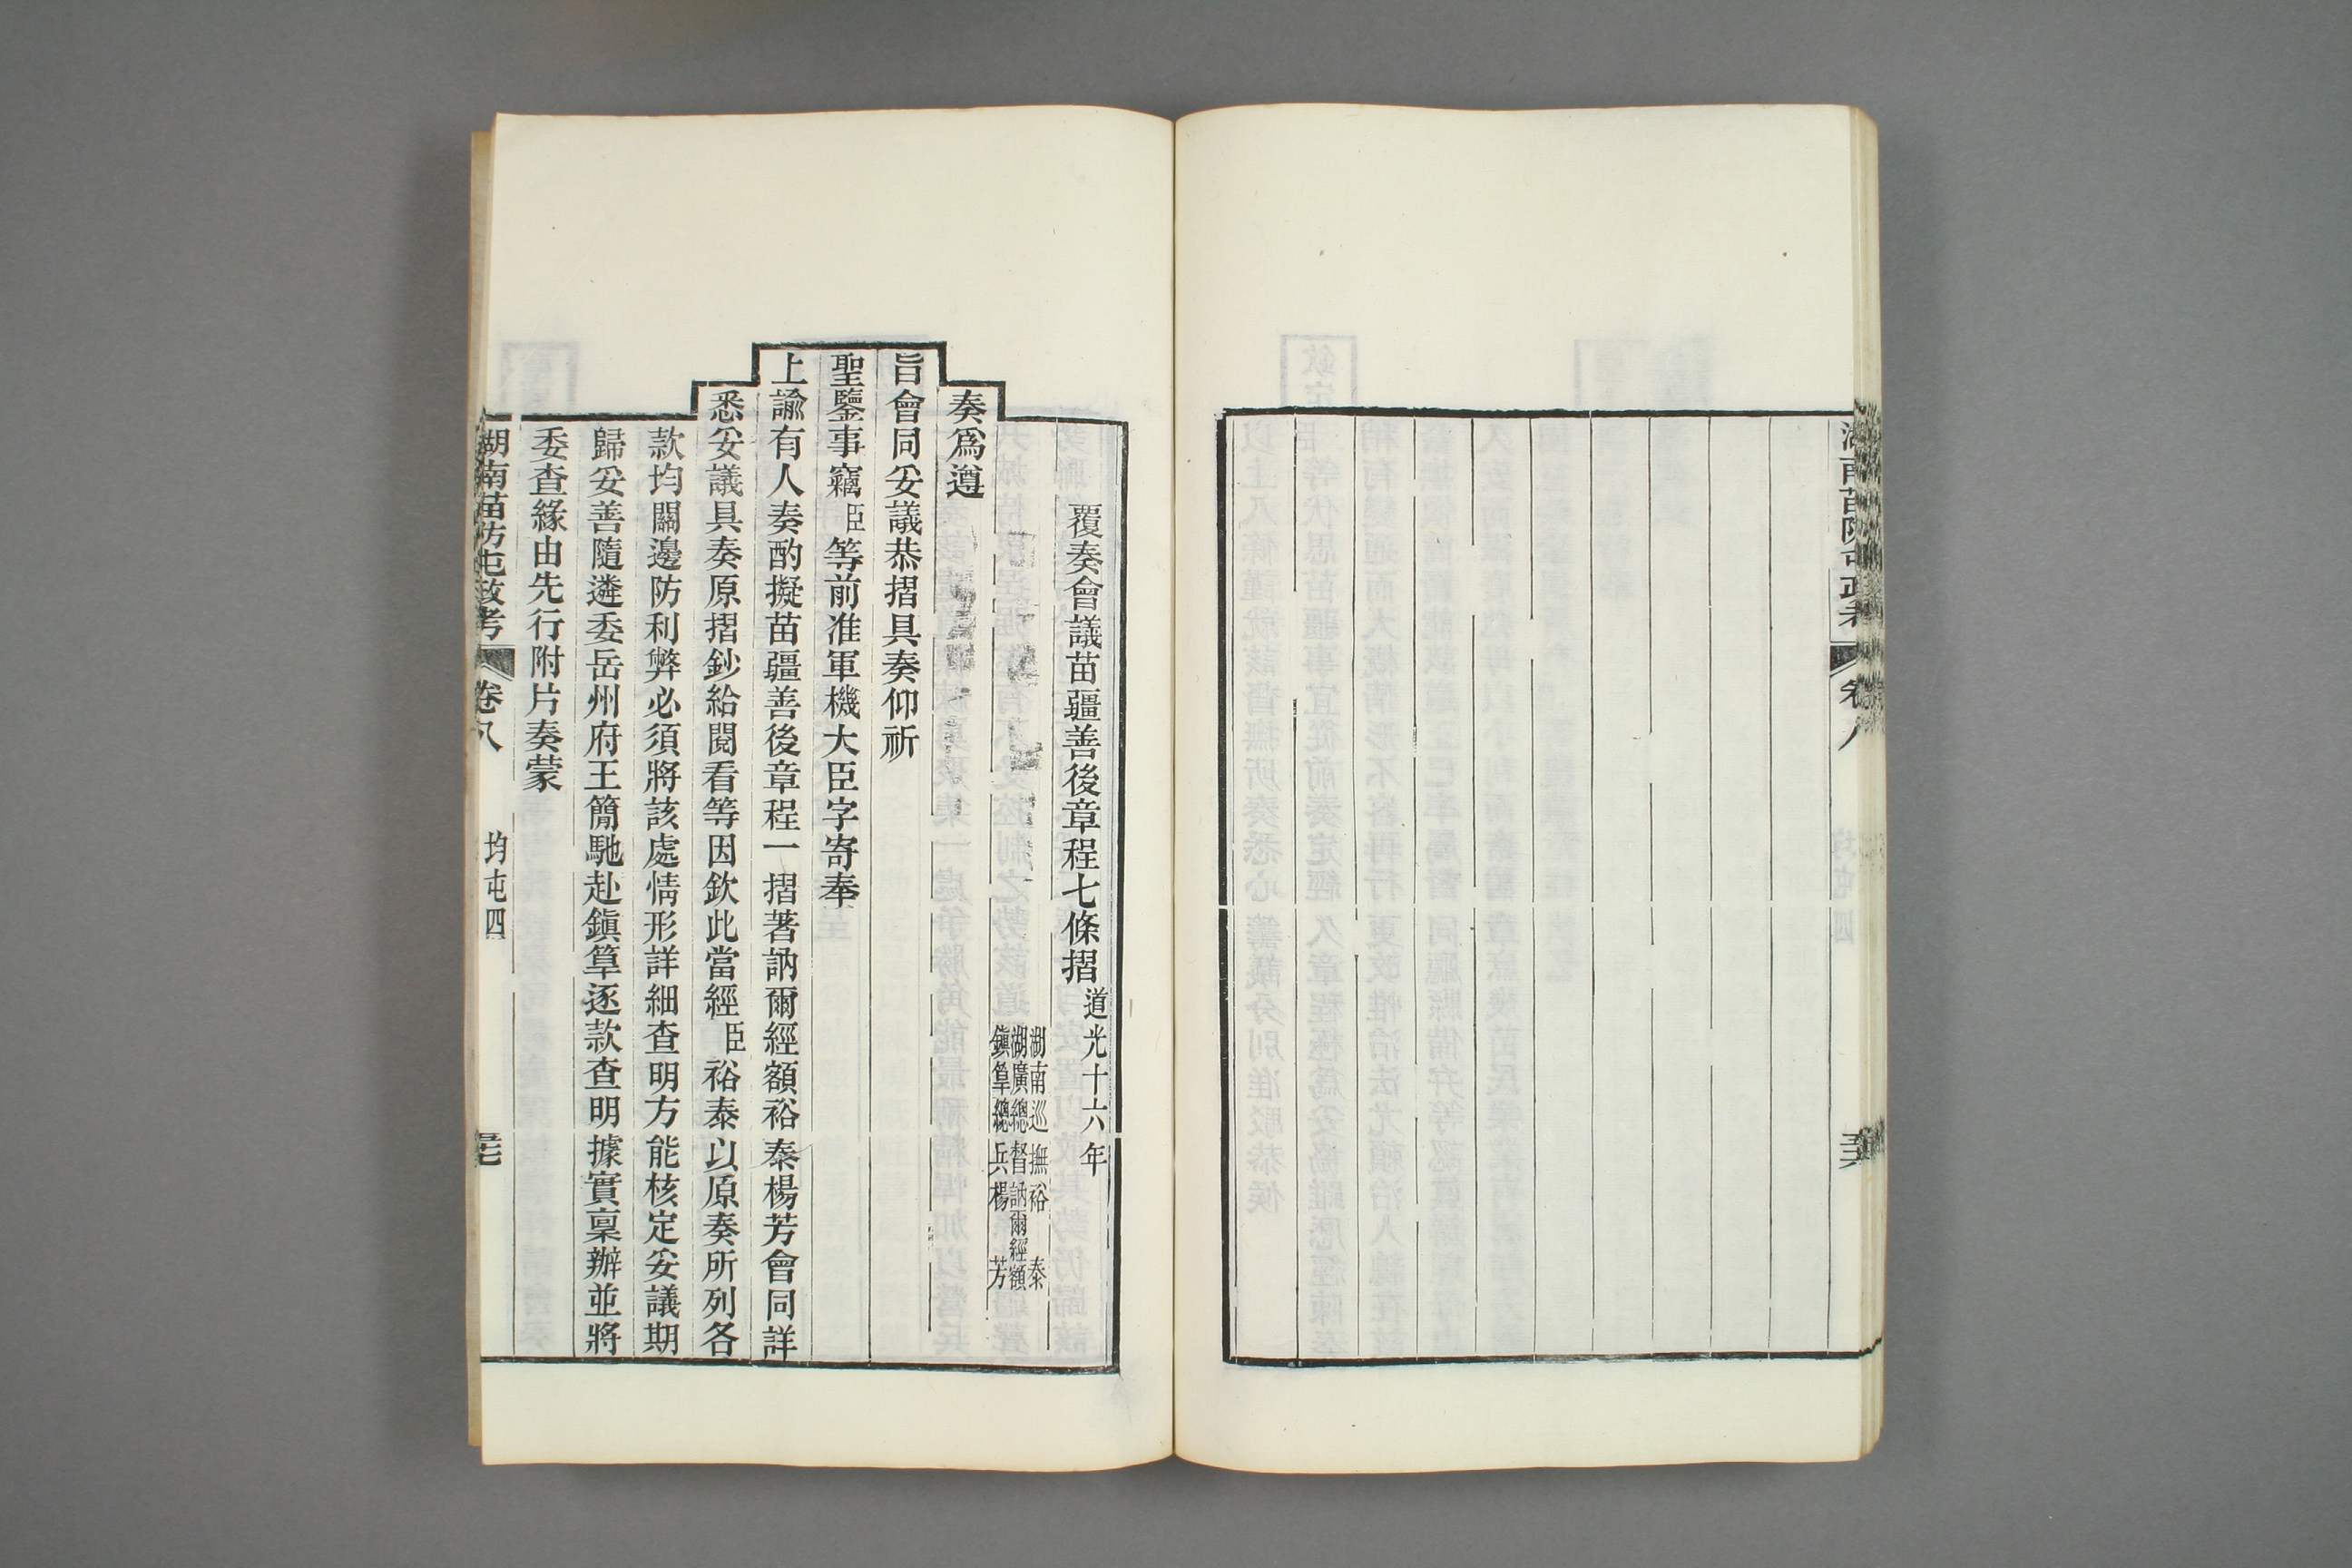 湖南苗防屯政考
卷八
覆奏會議苗疆善後章程七條摺道光十六年
湖南巡撫裕泰
湖廣總督訥爾經額
鎮筸總兵楊芳
奏爲遵
旨會同妥議恭摺具奏仰祈
聖鑒事竊臣等前准軍機大臣字寄奉
上諭有人奏酌擬苗疆善後章程一摺著訥爾經額裕泰楊芳會同詳
悉妥議具奏原摺鈔給閱看等因欽此當經臣裕泰以原奏所列各
款均關邊防利弊必須將該處情形詳細查明方能核定妥議期
歸妥善隨遴委岳州府王簡馳赴鎮筸逐款查明據實稟辦並將
委查緣由先行附片奏蒙
湖南苗防屯政考
卷八
均屯四